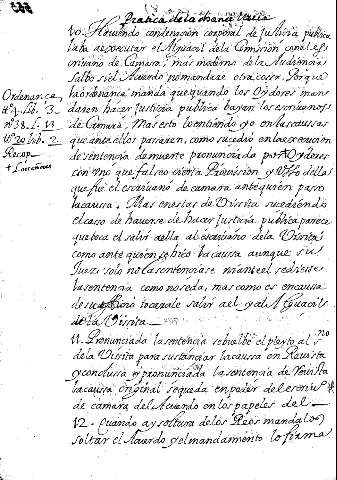 Pratica de la chanzilleria
10. Haviendo condenacion corporal de justicia publica
la ta de executar el Alguacil de la Comision con el es
criuano de Camara, mas motiems de la Audiencia
salbo si el Acuerdo no mandare otra cosa. Porque
ha ordenança manda que quando los Oydores man
daren hacer Justicia publica bayan los escriuanos
de Camara, Mas esto lo entiendo yo en las caussas
que ante ellos passaren, como sucedió en la execucion
de sentencia de muerte pronunciada por Oydores
con vno que falseo cierta Prouision, y Visto della
que fué el escriuano de camara ante quien passo
la caussa. Mas en estas de Vissita sucediendo
el caso de hauerse de hacer Justicia publica parece
que toca el salir a ella al escriuano de la Vissita
como ante quien se hizo la caussa aunque su
Juez solo no la sentenciase
la sentencia como no se da, mas como es en caussa
de su oficio toca le salir a el y al Alguacil
de la Vissita
Ordenança
tº 4. Lib. 3.
nº 38. L. 13
tº 20 lib. 2.
Recop.
11. Pronunciada la sentencia se buelbe el pleyto al sno
de la Vissita para sustanciar la caussa en Reuista
y conclussa y pronunciada la sentencia de Reuista
la caussa original se queda en poder del escriuº
de camara del Acuerdo en los papeles del
12. Quando ay soltura de los Reos manda los
soltar el Acuerdo y el mandamiento lo firma